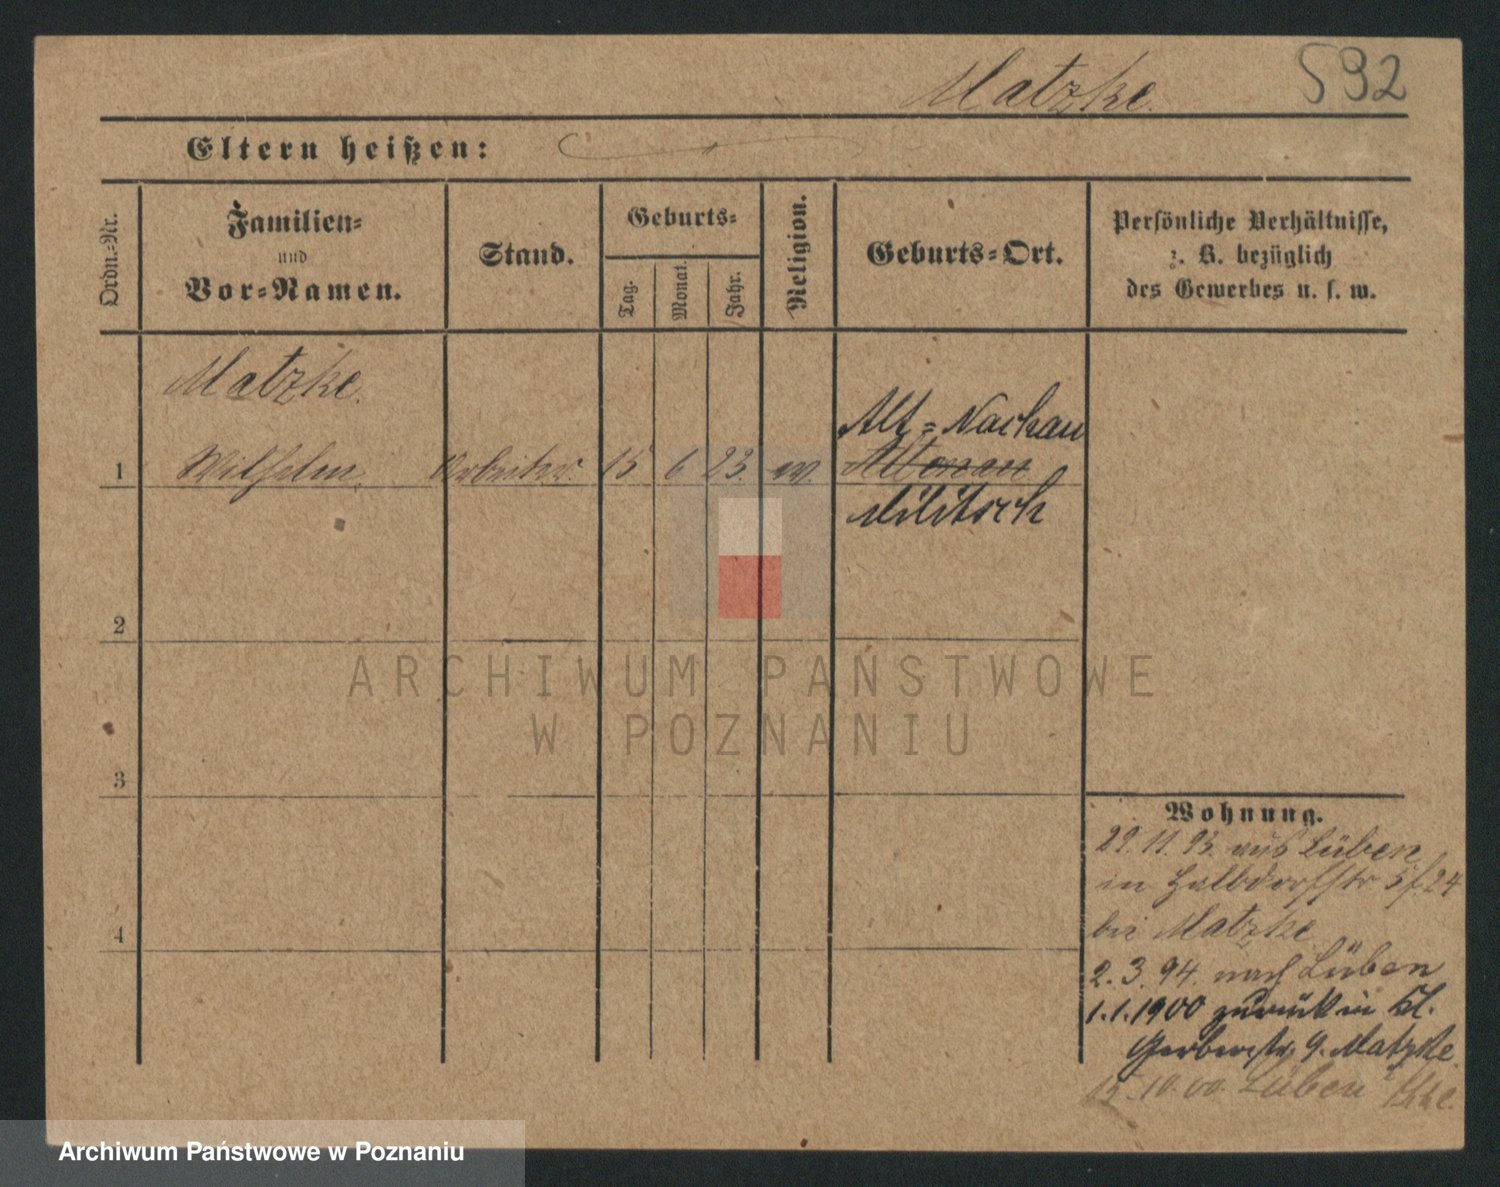 Matzke. 592
Eltern heißen:
Ordn.-Nr.
Familien-
und
Vor-Namen.
Stand.
Geburts-
Tag.
Monat.
Jahr.
Religion.
Geburts-Ort.
Persönliche Verhältnisse,
z. B. bezüglich
des Gewerbes u. s. w.
Matzke.
Alt-Nachau
1 Wilhelm Arbeiter 15 6 23. ev. Altenau
Militsch
2
ARCHIWUM PAŃSTWOWE
W POZNANIU
3
Wohnung.
29. 11. 93. aus Lüben
in Halbdorfstr 24
bei Matzke
4
2. 3. 94. nach Lüben
1. 1. 1900 zurück in Kl.
Gerberstr. 9. Matzke
15. 10. 00. Lüben
Archiwum Państwowe w Poznaniu